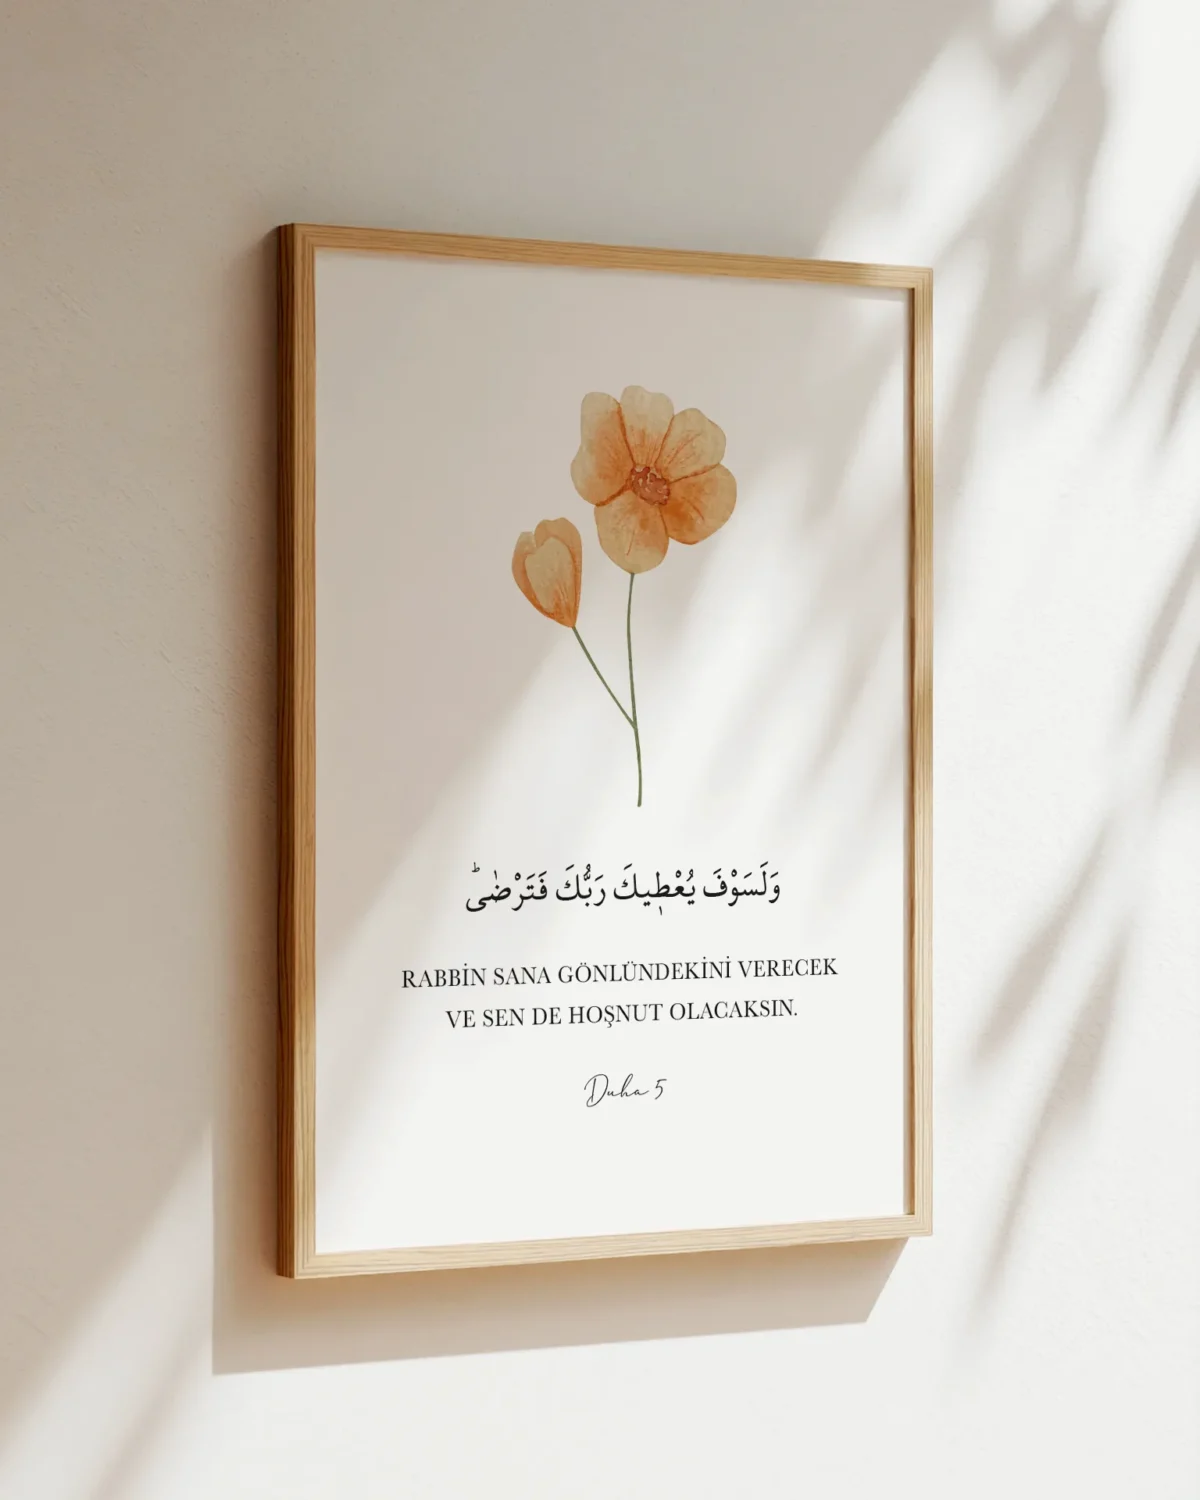 وَلَسَوْفَ يُعْط۪يكَ رَبُّكَ فَتَرْضٰىۜ
RABBİN SANA GÖNLÜNDEKİNİ VERECEK
VE SEN DE HOŞNUT OLACAKSIN.
Duha 5